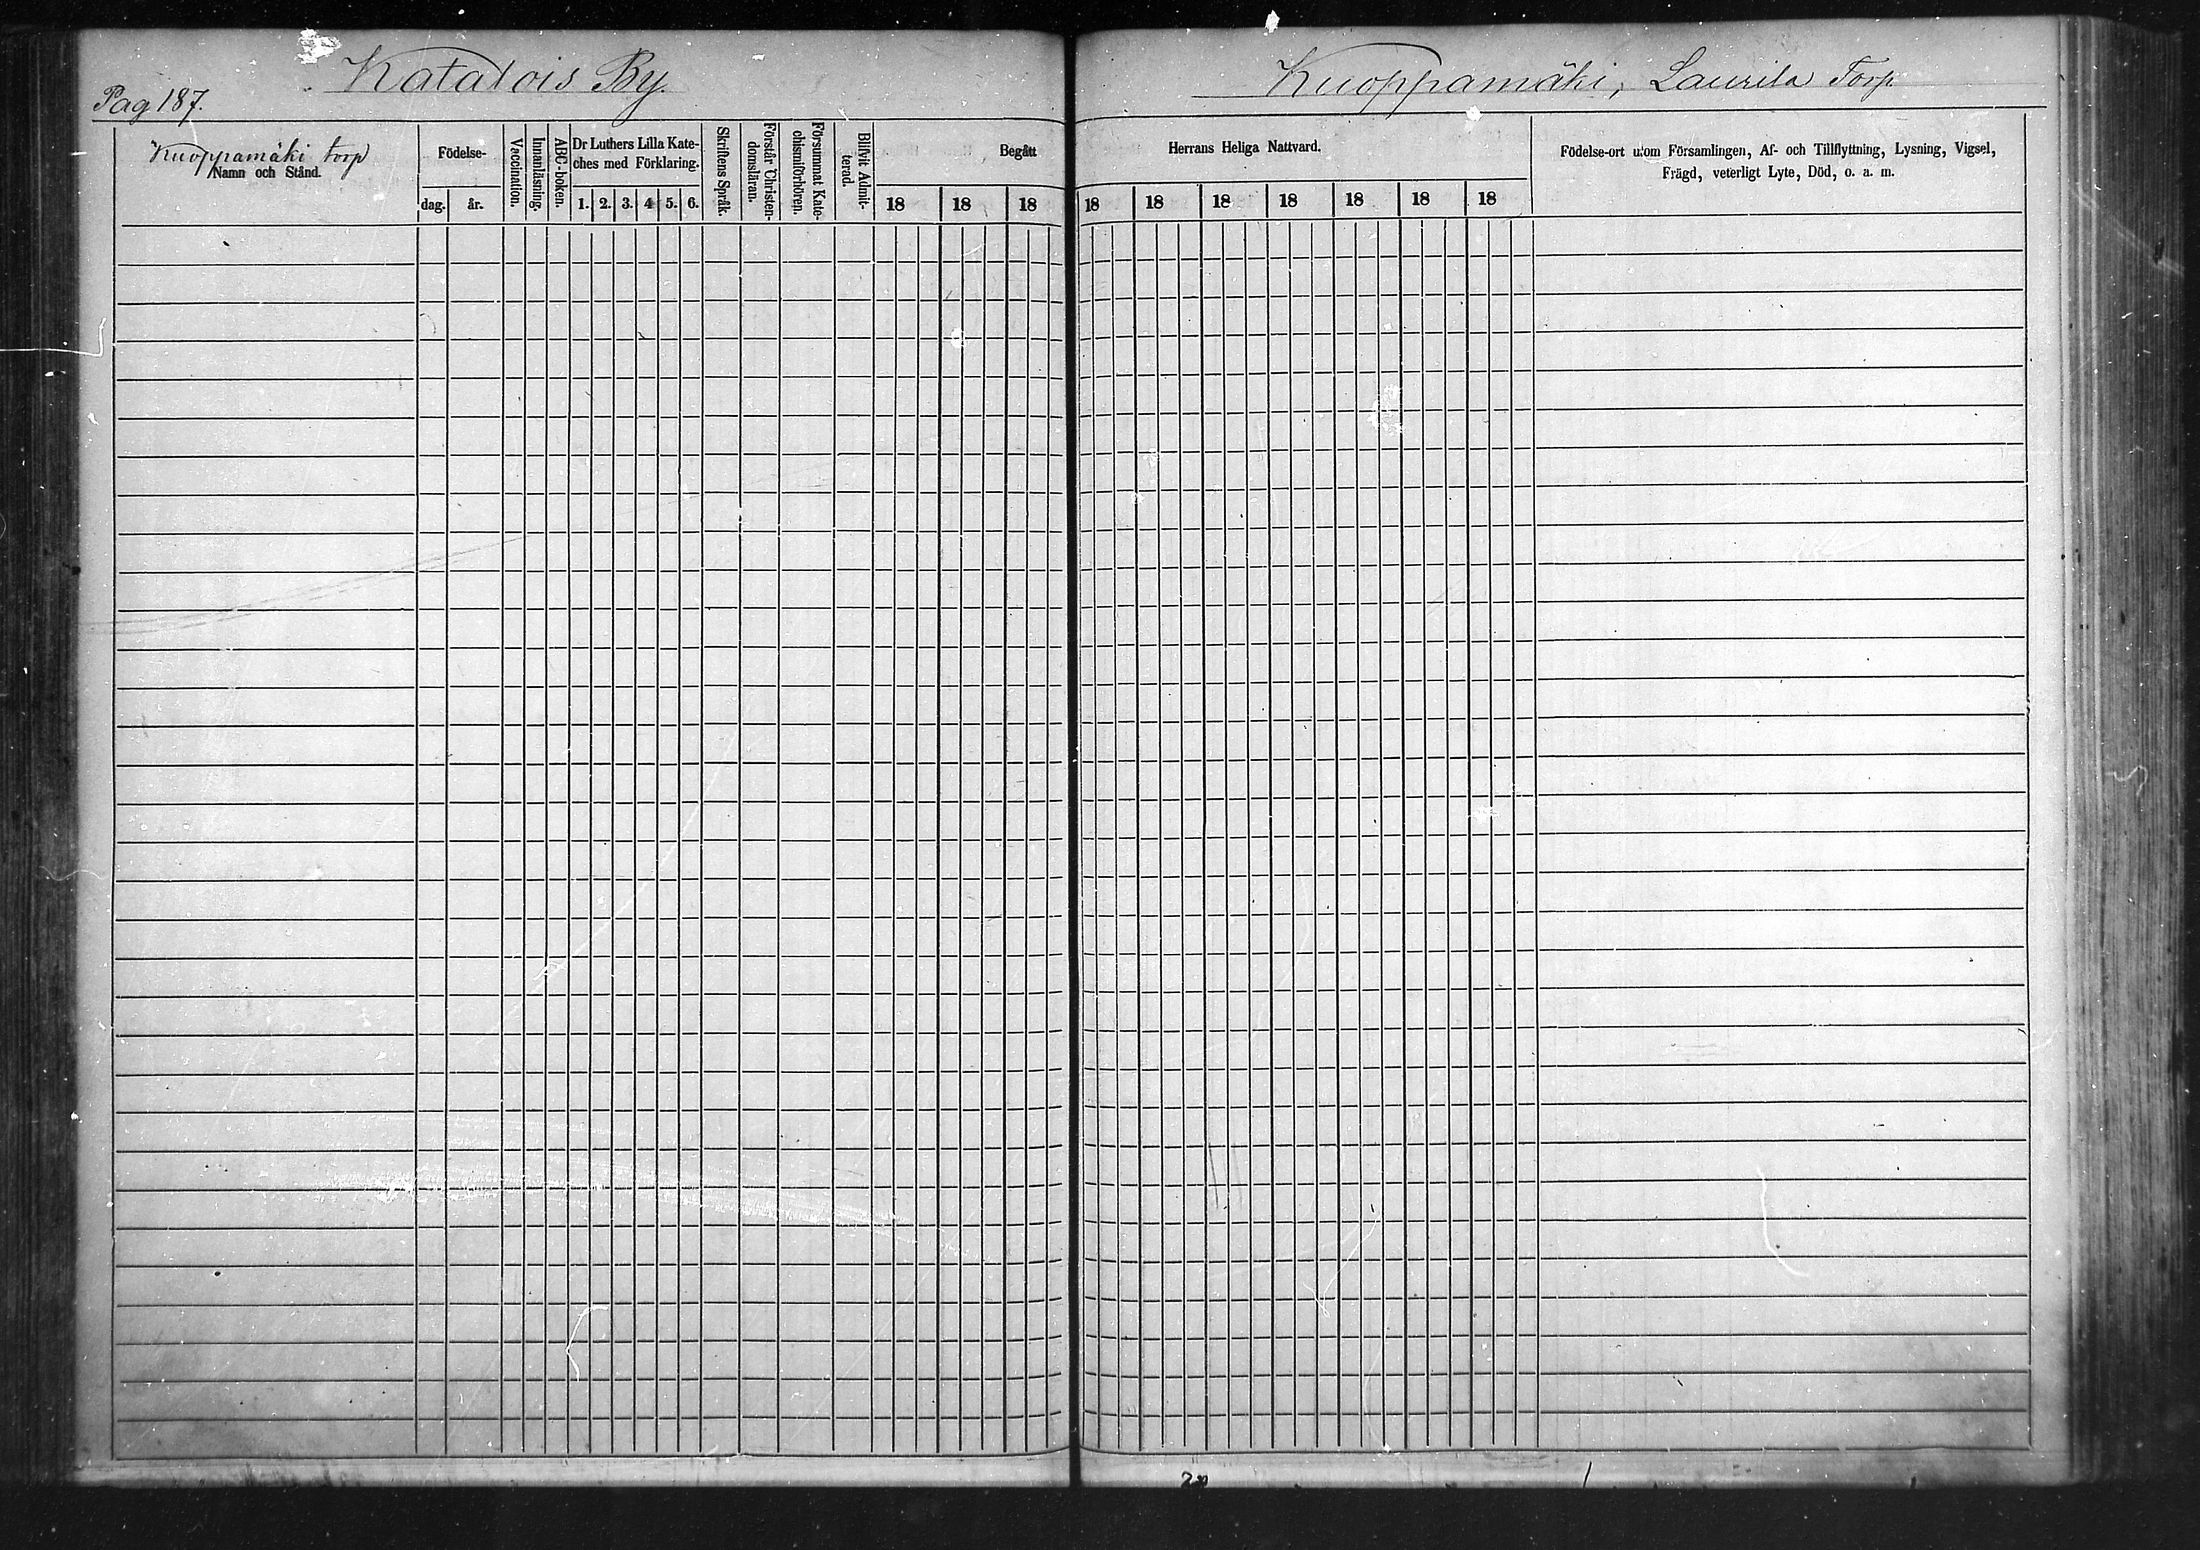 Pag 187.
Kataloıs By.
Kuoppamäki, Laurila Torp.
Kuoppamäki torp
Namn och Stånd.
Födelse-
dag.
år.
Vaccination.
Innanläsning.
ABC-boken.
Dr Luthers Lilla Kate-
ches med Förklaring.
1. 2. 3. 4 5. 6.
Skriftens Språk.
Förstår Christen-
domsläran.
Försummat Kate-
chismiförhören.
Blifvit Admit-
terad.
Begått
18 18 18
Herrans Heliga Nattvard.
18 18 18 18 18 18 18
Födelse-ort utom Församlingen, Af- och Tillflyttning, Lysning, Vigsel,
Frägd, veterligt Lyte, Död, o. a. m.